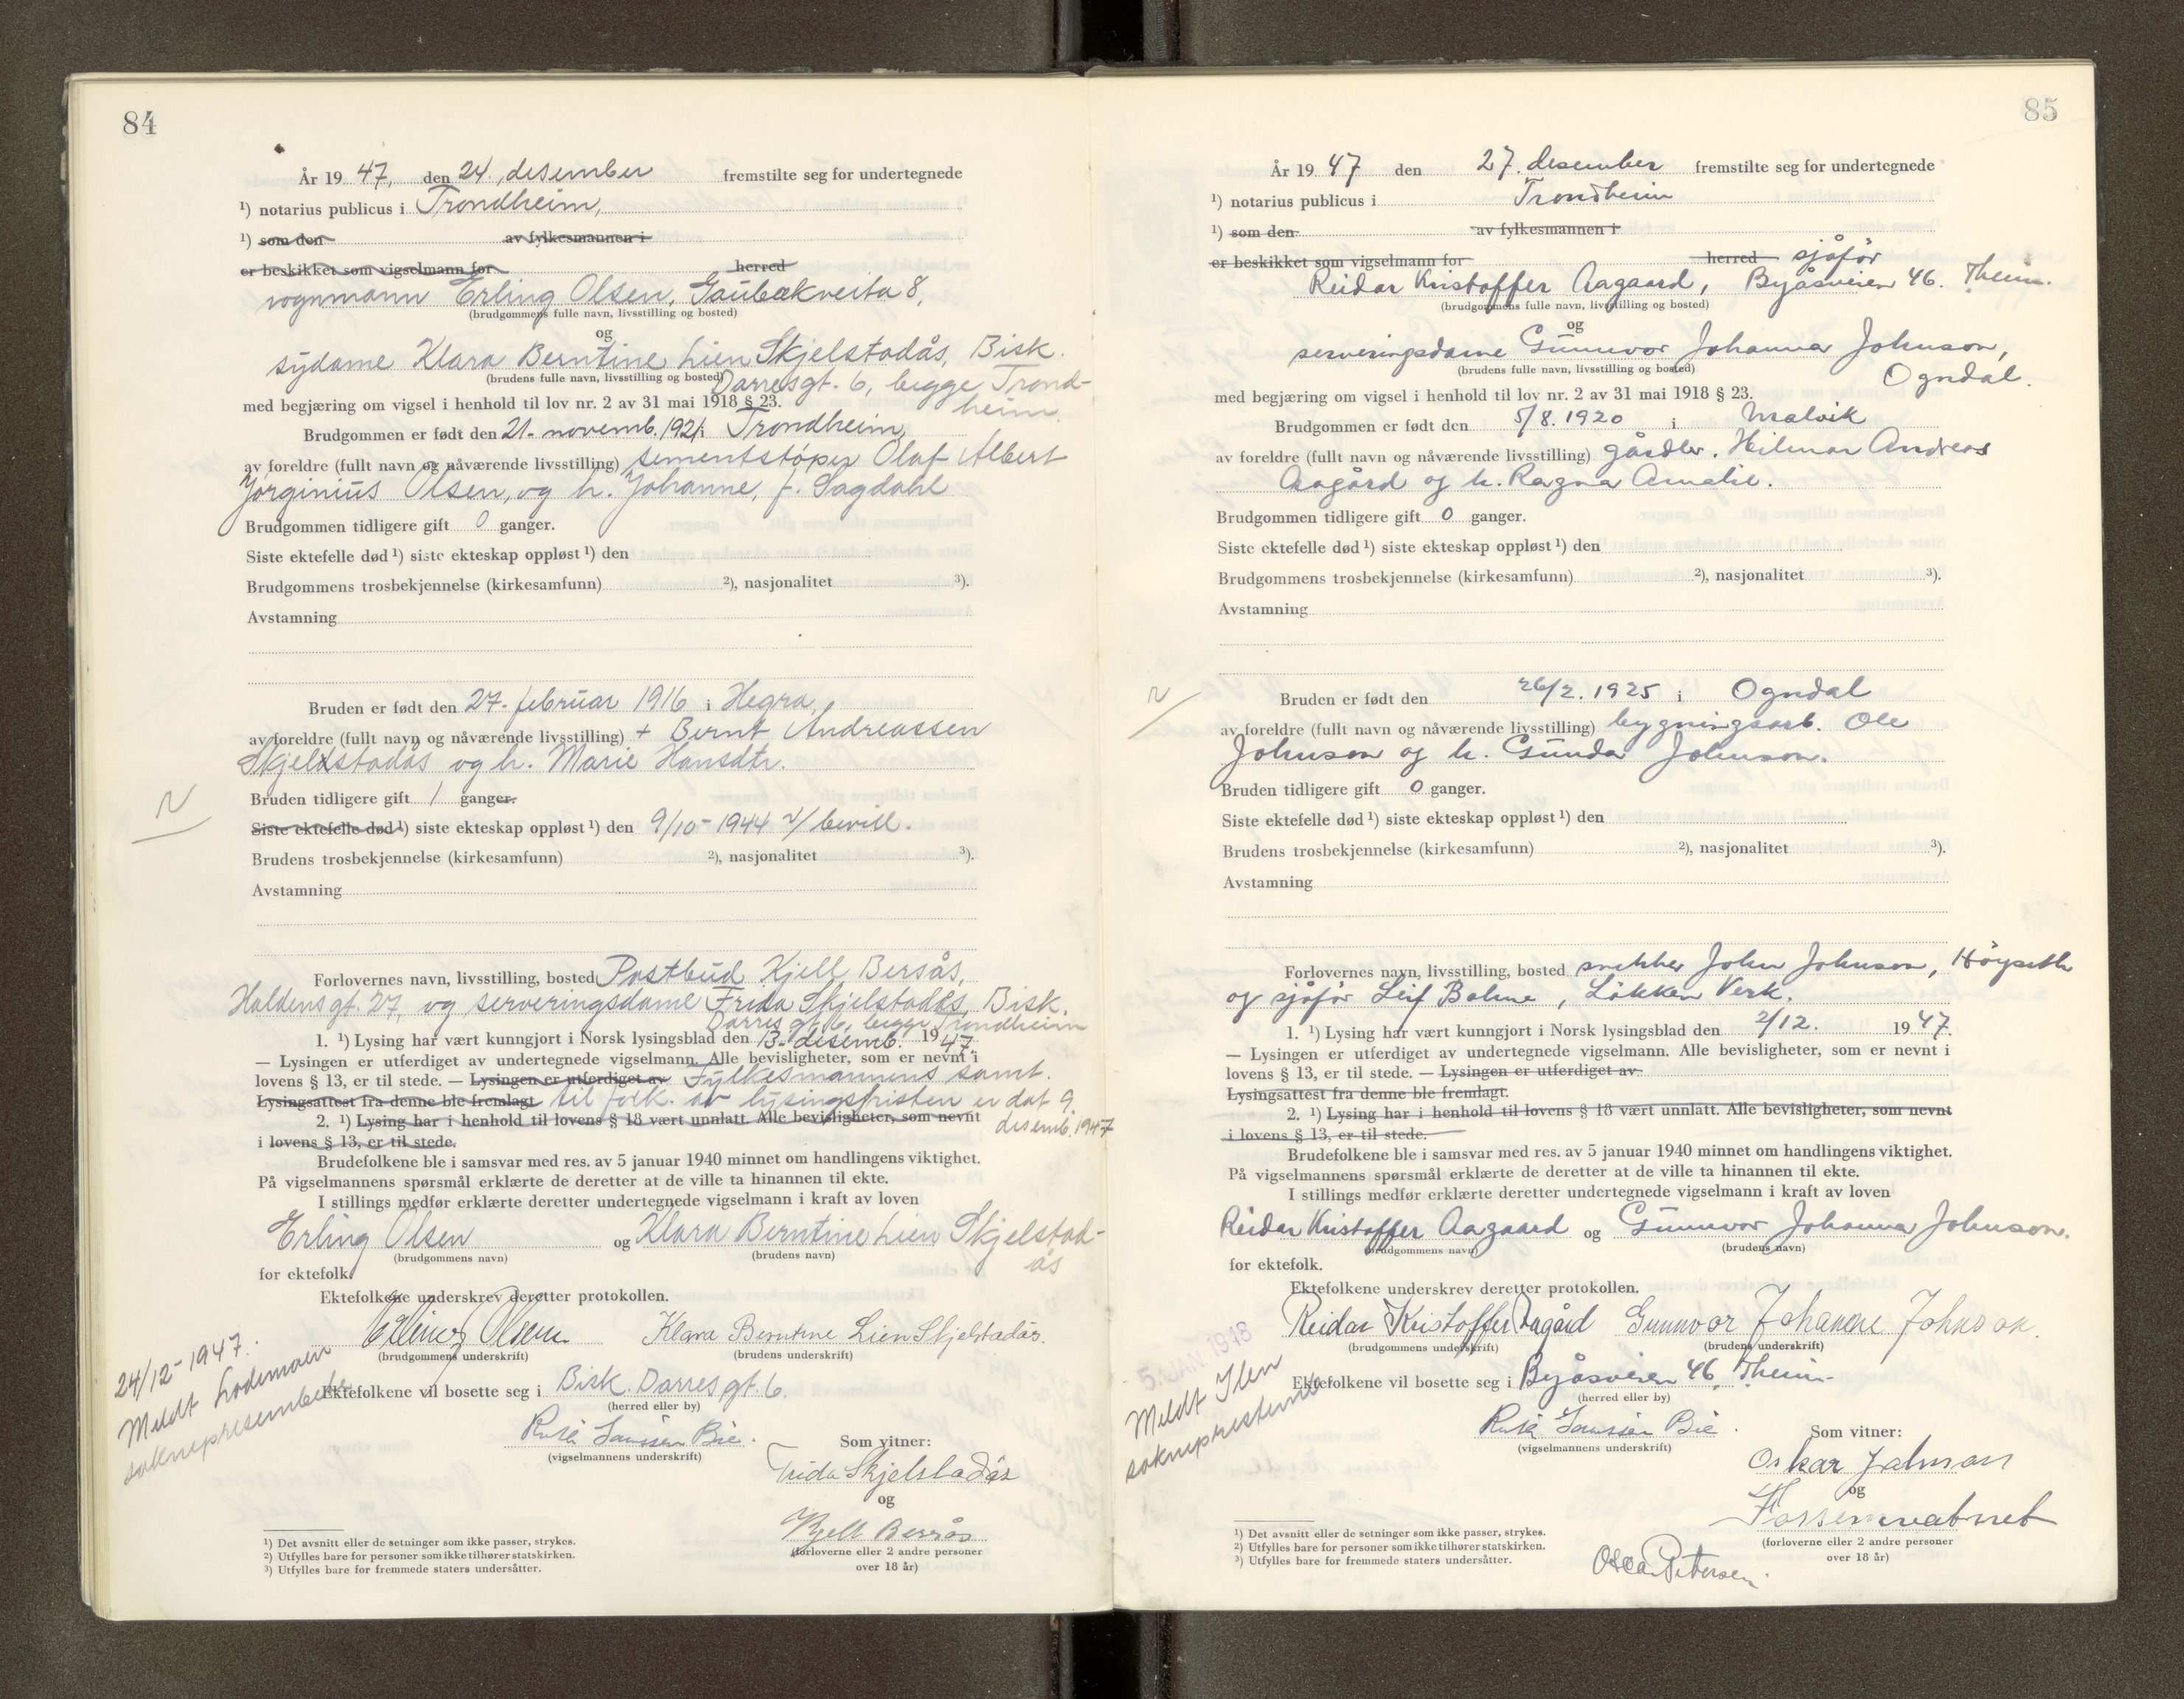 84
År 19 47, den 24. desember fremstilte seg for undertegnede
¹) notarius publicus i Trondheim,
¹) som den av fylkesmannen i
er beskikket som vigselmann for herred
vognmann Erling Olsen, Gaubækveita 8,
(brudgommens fulle navn, livsstilling og bosted)
og
sydame Klara Berntine Lien Skjelstadås, Bisk.
(brudens fulle navn, livsstilling og bosted)
Darresgt. 6, begge Trond-
heim
med begjæring om vigsel i henhold til lov nr. 2 av 31 mai 1918 § 23.
Brudgommen er født den 21. novemb. 1921 i Trondheim,
av foreldre (fullt navn og nåværende livsstilling) sementstøper Olaf Albert
Jørginius Olsen, og h. Johanne, f. Sagdahl
Brudgommen tidligere gift 0 ganger.
Siste ektefelle død ¹) siste ekteskap oppløst ¹) den
Brudgommens trosbekjennelse (kirkesamfunn) ²), nasjonalitet ³).
Avstamning
Bruden er født den 27. februar 1916 i Hegra,
av foreldre (fullt navn og nåværende livsstilling) + Bernt Andreassen
Skjelstadås og h. Marie Hansdtr.
N
Bruden tidligere gift 1 ganger.
Siste ektefelle død ¹) siste ekteskap oppløst ¹) den 9/10-1944 v/ bevill.
Brudens trosbekjennelse (kirkesamfunn) ²), nasjonalitet ³).
Avstamning
Forlovernes navn, livsstilling, bosted Postbud Kjell Bersås,
Haldensgt. 27, og serveringsdame Frida Skjelstadås, Bisk.
Darres gt. 6, begge Trondheim
1. ¹) Lysing har vært kunngjort i Norsk lysingsblad den 13. desemb. 1947.
— Lysingen er utferdiget av undertegnede vigselmann. Alle bevisligheter, som er nevnt i
lovens § 13, er til stede. — Lysingen er utferdiget av Fylkesmannens samt.
Lysingsattest fra denne ble fremlagt til fork. av lysingsfristen er dat 9.
desemb. 1947
2. ¹) Lysing har i henhold til lovens § 18 vært unnlatt. Alle bevisligheter, som nevnt
i lovens § 13, er til stede.
Brudefolkene ble i samsvar med res. av 5 januar 1940 minnet om handlingens viktighet.
På vigselmannens spørsmål erklærte de deretter at de ville ta hinannen til ekte.
I stillings medfør erklærte deretter undertegnede vigselmann i kraft av loven
Erling Olsen og Klara Berntine Lien Skjelstad-
ås
(brudgommens navn) (brudens navn)
for ektefolk.
Ektefolkene underskrev deretter protokollen.
Erling Olsen Klara Berntine Lien Skjelstadås.
(brudgommens underskrift) (brudens underskrift)
24/12-1947.
Meldt Lademoen
sokneprestembete
Ektefolkene vil bosette seg i Bisk. Darres gt. 6.
(herred eller by)
(vigselmannens underskrift)
Som vitner:
Frida Skjelstadås
og
Kjell Bersås
(forloverne eller 2 andre personer
over 18 år)
¹) Det avsnitt eller de setninger som ikke passer, strykes.
²) Utfylles bare for personer som ikke tilhører statskirken.
³) Utfylles bare for fremmede staters undersåtter.
85
År 19 47 den 27. desember fremstilte seg for undertegnede
¹) notarius publicus i Trondheim
¹) som den av fylkesmannen i
er beskikket som vigselmann for herred sjåfør
Reidar Kristoffer Aagaard, Byåsveien 46. Theim.
(brudgommens fulle navn, livsstilling og bosted)
og
serveringsdame Gunnvor Johanna Johnson,
(brudens fulle navn, livsstilling og bosted)
Ogndal.
med begjæring om vigsel i henhold til lov nr. 2 av 31 mai 1918 § 23.
Brudgommen er født den 5/8. 1920 i Malvik
av foreldre (fullt navn og nåværende livsstilling) gårdbr. Hilmar Andreas
Aagård og h. Ragna Amalie.
Brudgommen tidligere gift 0 ganger.
Siste ektefelle død ¹) siste ekteskap oppløst ¹) den
Brudgommens trosbekjennelse (kirkesamfunn) ²), nasjonalitet ³).
Avstamning
N
Bruden er født den 26/2. 1925 i Ogndal
av foreldre (fullt navn og nåværende livsstilling) bygningsarb. Ole
Johnson og h. Gunda Johnson.
Bruden tidligere gift 0 ganger.
Siste ektefelle død ¹) siste ekteskap oppløst ¹) den
Brudens trosbekjennelse (kirkesamfunn) ²), nasjonalitet ³).
Avstamning
Forlovernes navn, livsstilling, bosted snekker John Johnson, Höyseth
og sjåfør Leif Bolme, Løkken Verk.
1. ¹) Lysing har vært kunngjort i Norsk lysingsblad den 2/12. 1947.
— Lysingen er utferdiget av undertegnede vigselmann. Alle bevisligheter, som er nevnt i
lovens § 13, er til stede. — Lysingen er utferdiget av
Lysingsattest fra denne ble fremlagt.
2. ¹) Lysing har i henhold til lovens § 18 vært unnlatt. Alle bevisligheter, som nevnt
i lovens § 13, er til stede.
Brudefolkene ble i samsvar med res. av 5 januar 1940 minnet om handlingens viktighet.
På vigselmannens spørsmål erklærte de deretter at de ville ta hinannen til ekte.
I stillings medfør erklærte deretter undertegnede vigselmann i kraft av loven
Reidar Kristoffer Aagaard og Gunnvor Johanna Johnson.
(brudgommens navn) (brudens navn)
for ektefolk.
Ektefolkene underskrev deretter protokollen.
Reidar Kristoffer Aagård Gunnvor Johanne Johnson.
(brudgommens underskrift) (brudens underskrift)
5. JAN 1948
Meldt Ilen
Ektefolkene vil bosette seg i Byåsveien 46, Theim.
(herred eller by)
(vigselmannens underskrift)
Som vitner:
Oskar
og
(forloverne eller 2 andre personer
over 18 år)
¹) Det avsnitt eller de setninger som ikke passer, strykes.
²) Utfylles bare for personer som ikke tilhører statskirken.
³) Utfylles bare for fremmede staters undersåtter.